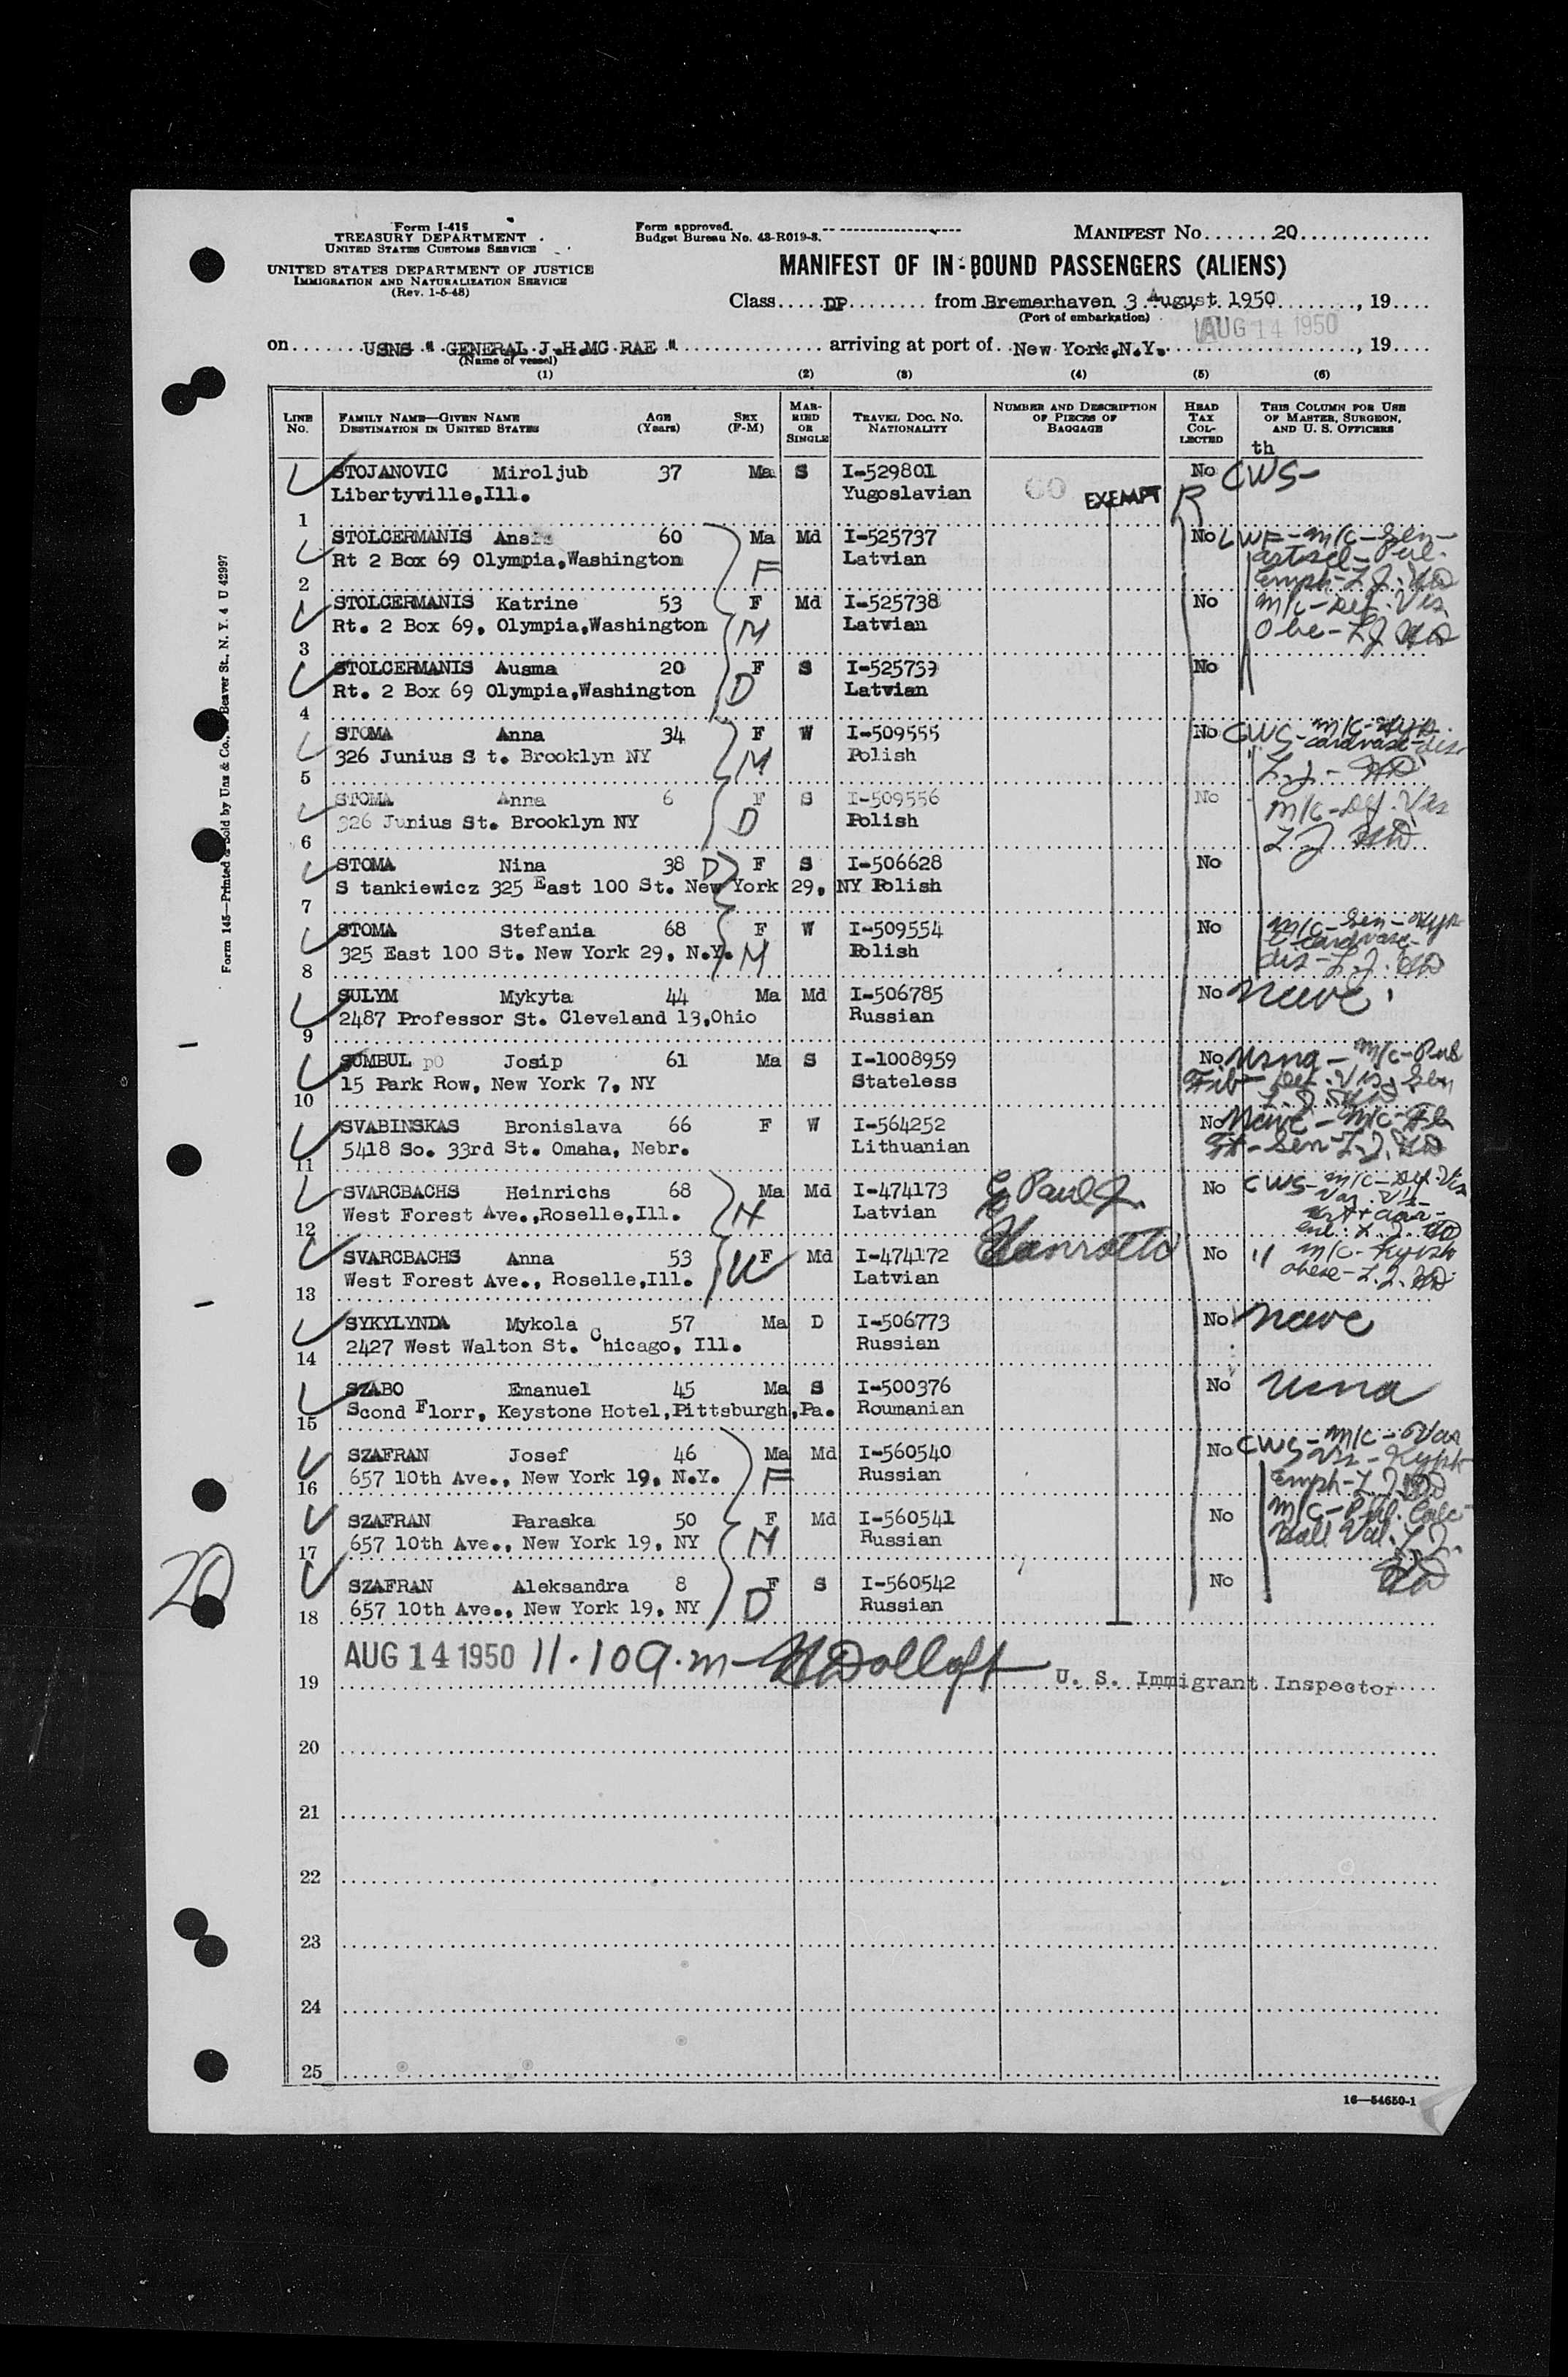 Form I-415
TREASURY DEPARTMENT
UNITED STATES CUSTOMS SERVICE
UNITED STATES DEPARTMENT OF JUSTICE
IMMIGRATION AND NATURALIZATION SERVICE
(Rev. 1-5-48)
Form approved.
Budget Bureau No. 43-R019-3.
MANIFEST No. 20
MANIFEST OF IN-BOUND PASSENGERS (ALIENS)
Class DP from Bremerhaven 3 August 1950, 19
(Port of embarkation)
AUG 14 1950
on USNS " GENERAL J.H.MC RAE " arriving at port of New York,N.Y., 19
(Name of vessel)
(1) (2) (3) (4) (5) (6)
LINE No. FAMILY NAME—GIVEN NAME DESTINATION IN UNITED STATES AGE (Years) SEX (F-M) MARRIED OR SINGLE TRAVEL DOC. NO. NATIONALITY NUMBER AND DESCRIPTION OF PIECES OF BAGGAGE HEAD TAX COLLECTED THIS COLUMN FOR USE OF MASTER, SURGEON, AND U. S. OFFICERS
th
STOJANOVIC Miroljub 37 Ma S I-529801 No CWS-
Libertyville,Ill. Yugoslavian EXEMPT R
1
STOLCERMANIS 60 Ma Md I-525737 No LWF-m/c-Sen-
Rt 2 Box 69 Olympia,Washington F Latvian
2 emph-L.J.
STOLCERMANIS Katrine 53 F Md I-525738 No m/c-Def.Vis
Rt. 2 Box 69, Olympia,Washington M Latvian
3
STOLCERMANIS Ausma 20 F S I-525739 No
Rt. 2 Box 69 Olympia,Washington D Latvian
4
STOMA Anna 34 F W I-509555 No CWS-m/c-
326 Junius S t. Brooklyn NY M Polish
5
STOMA Anna 6 F S I-509556 No m/c-Def.Vis
326 Junius St. Brooklyn NY D Polish
6
STOMA Nina 38 D F S I-506628 No
S tankiewicz 325 East 100 St. New York 29, NY Polish
7
STOMA Stefania 68 F W I-509554 No m/c-Sen-
325 East 100 St. New York 29, N.Y. M Polish
8
SULYM Mykyta 44 Ma Md I-506785 No
2487 Professor St. Cleveland 13,Ohio Russian
9
SUMBUL po Josip 61 Ma S I-1008959 No
15 Park Row, New York 7, NY Stateless
10
SVABINSKAS Bronislava 66 F W I-564252 No
5418 So. 33rd St. Omaha, Nebr. Lithuanian
11
SVARCBACHS Heinrichs 68 Ma Md I-474173 No CWS-m/c-Def.Vis
West Forest Ave.,Roselle,Ill. H Latvian
12
SVARCBACHS Anna 53 F Md I-474172 No " m/c-
West Forest Ave., Roselle,Ill. W Latvian
13
SYKYLYNDA Mykola 57 Ma D I-506773 No
2427 West Walton St. Chicago, Ill. Russian
14
SZABO Emanuel 45 Ma S I-500376 No
Scond Florr, Keystone Hotel,Pittsburgh,Pa. Roumanian
15
SZAFRAN Josef 46 Ma Md I-560540 No CWS-m/c-
657 10th Ave., New York 19, N.Y. F Russian
16
SZAFRAN Paraska 50 F Md I-560541 No
657 10th Ave., New York 19, NY M Russian
17
20
SZAFRAN Aleksandra 8 F S I-560542 No
657 10th Ave., New York 19, NY D Russian
18
AUG 14 1950 11.10 a.m-
19 U. S. Immigrant Inspector
20
21
22
23
24
25
16—54650-1